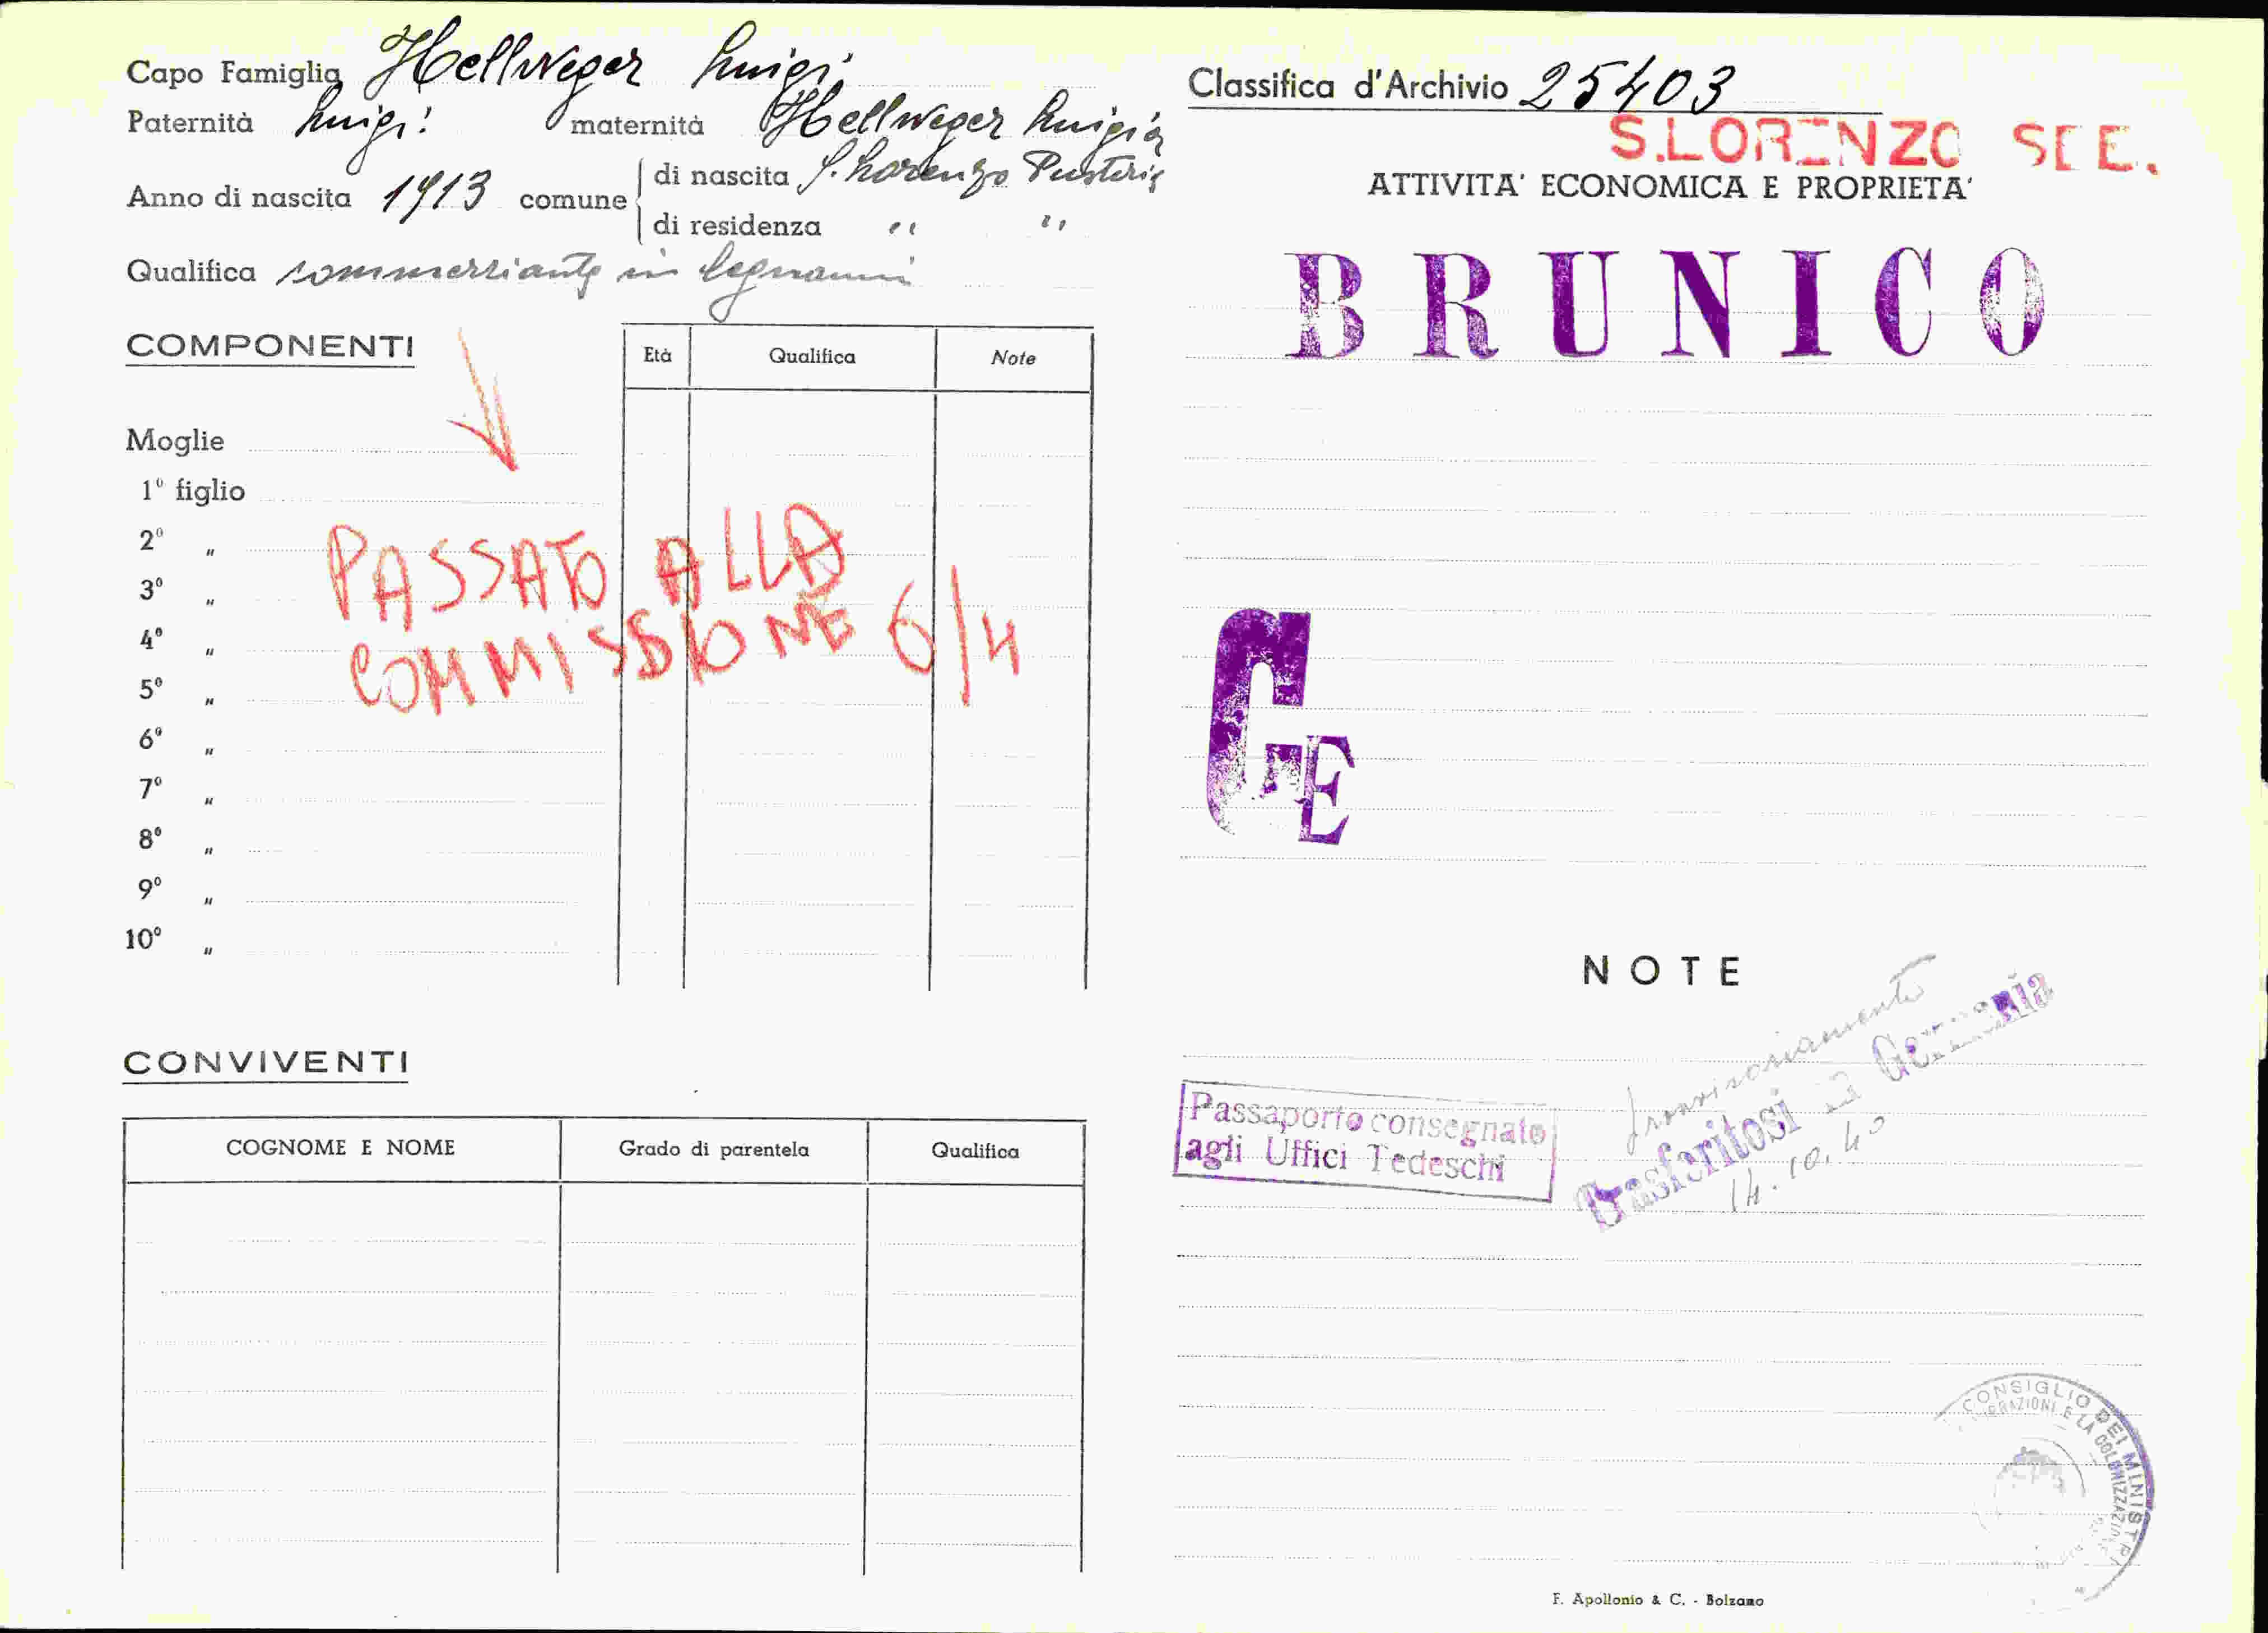 Capo Famiglia Hellweger Luigi
Paternità Luigi maternità Hellweger Luigia
Anno di nascita 1913 comune
di nascita S. Lorenzo Pusteria
di residenza " "
Qualifica commerciante in legnami
COMPONENTI
Età Qualifica Note
Moglie
1º figlio
2º "
3º "
4º "
5º "
6º "
7º "
8º "
9º "
10º "
PASSATO ALLA
COMMISSIONE 6/4
CONVIVENTI
COGNOME E NOME Grado di parentela Qualifica
Classifica d'Archivio 25403
S.LORENZO SEE.
ATTIVITA' ECONOMICA E PROPRIETA'
BRUNICO
GE
NOTE
Passaporto consegnato
agli Uffici Tedeschi
provvisoriamente
Trasferitosi in Germania
14.10.40
CONSIGLIO DEI MINISTRI
E LA COLONIZZAZIONE
F. Apollonio & C. - Bolzano